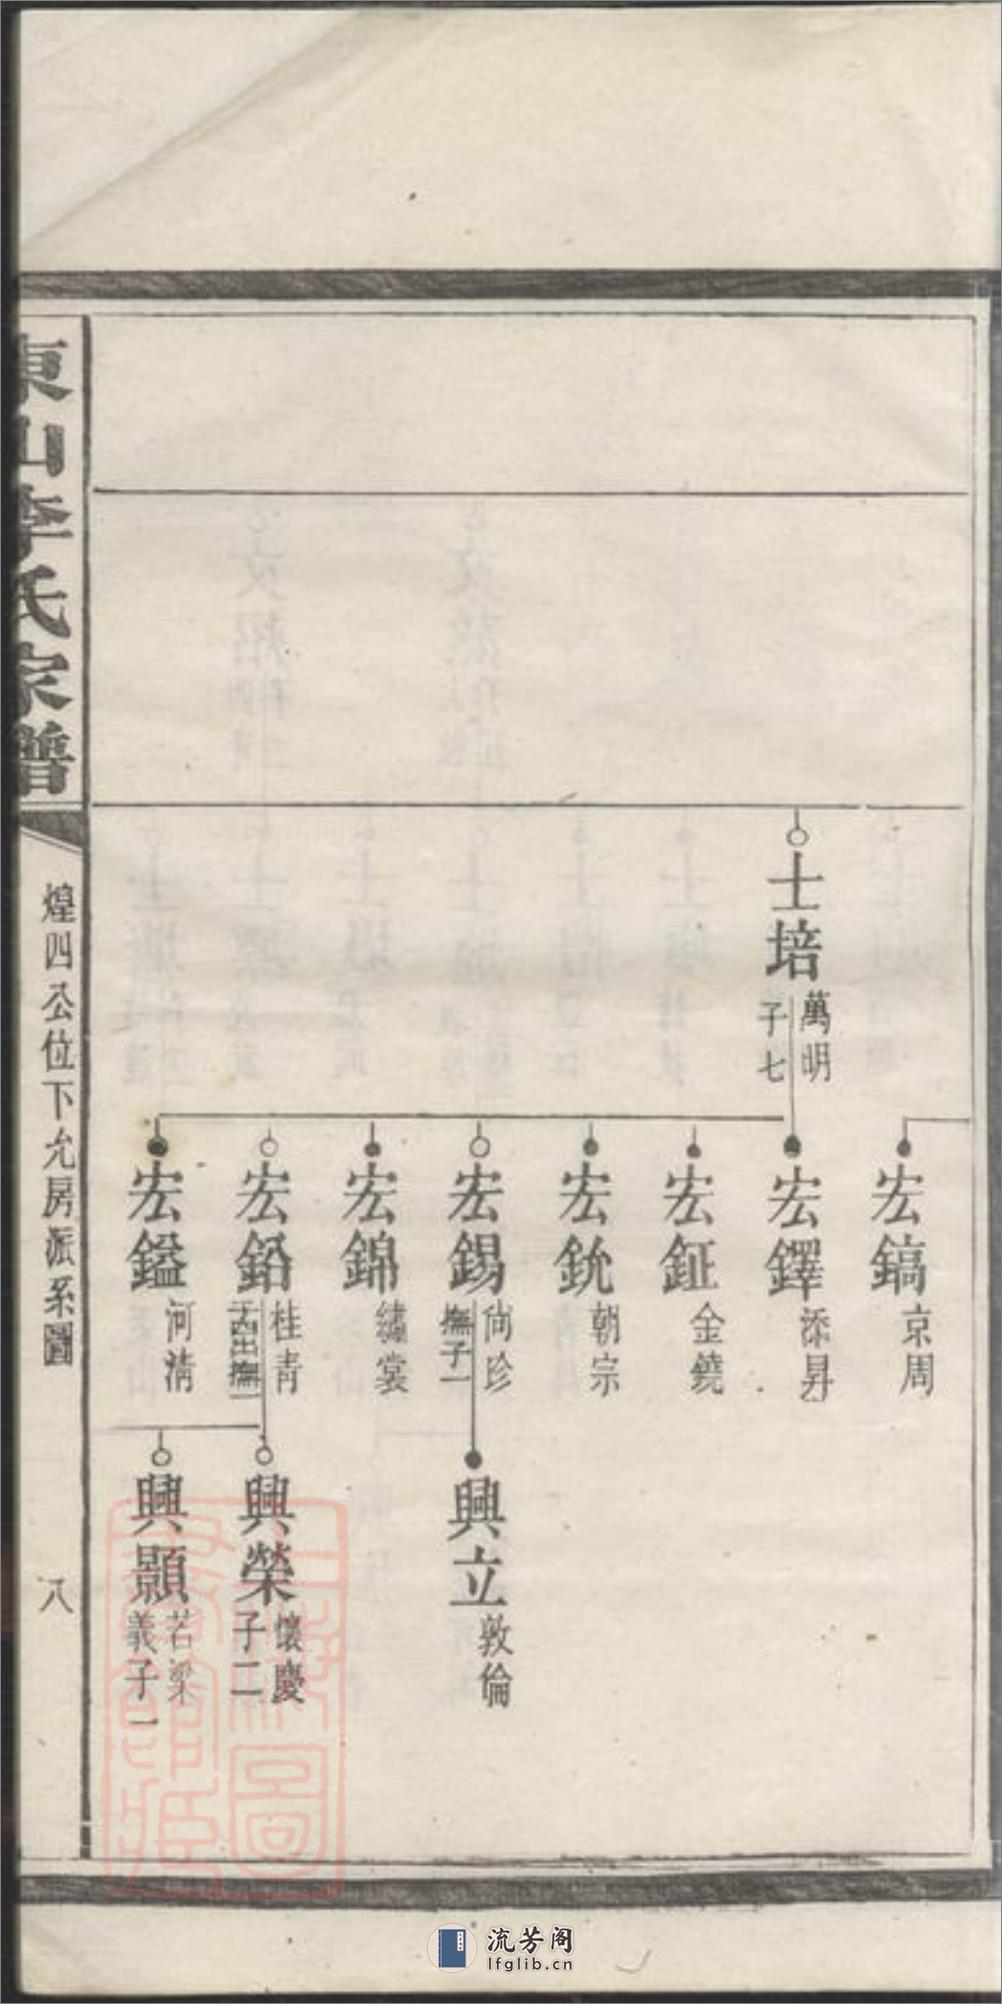 士培
萬明
子七
宏鎬
京周
宏鐸
添昇
宏鉦
金鐃
宏銃
朝宗
宏錫
尚珍
撫子一
興立
敦倫
宏錦
繡裳
宏鉛
桂青
子四出撫一
興榮
懷慶
子二
宏鎰
河清
興顯
若梁
義子一
東山李氏宗譜
煌四公位下允房派系圖
八
上海圖書館藏
流芳阁
lfglib.cn